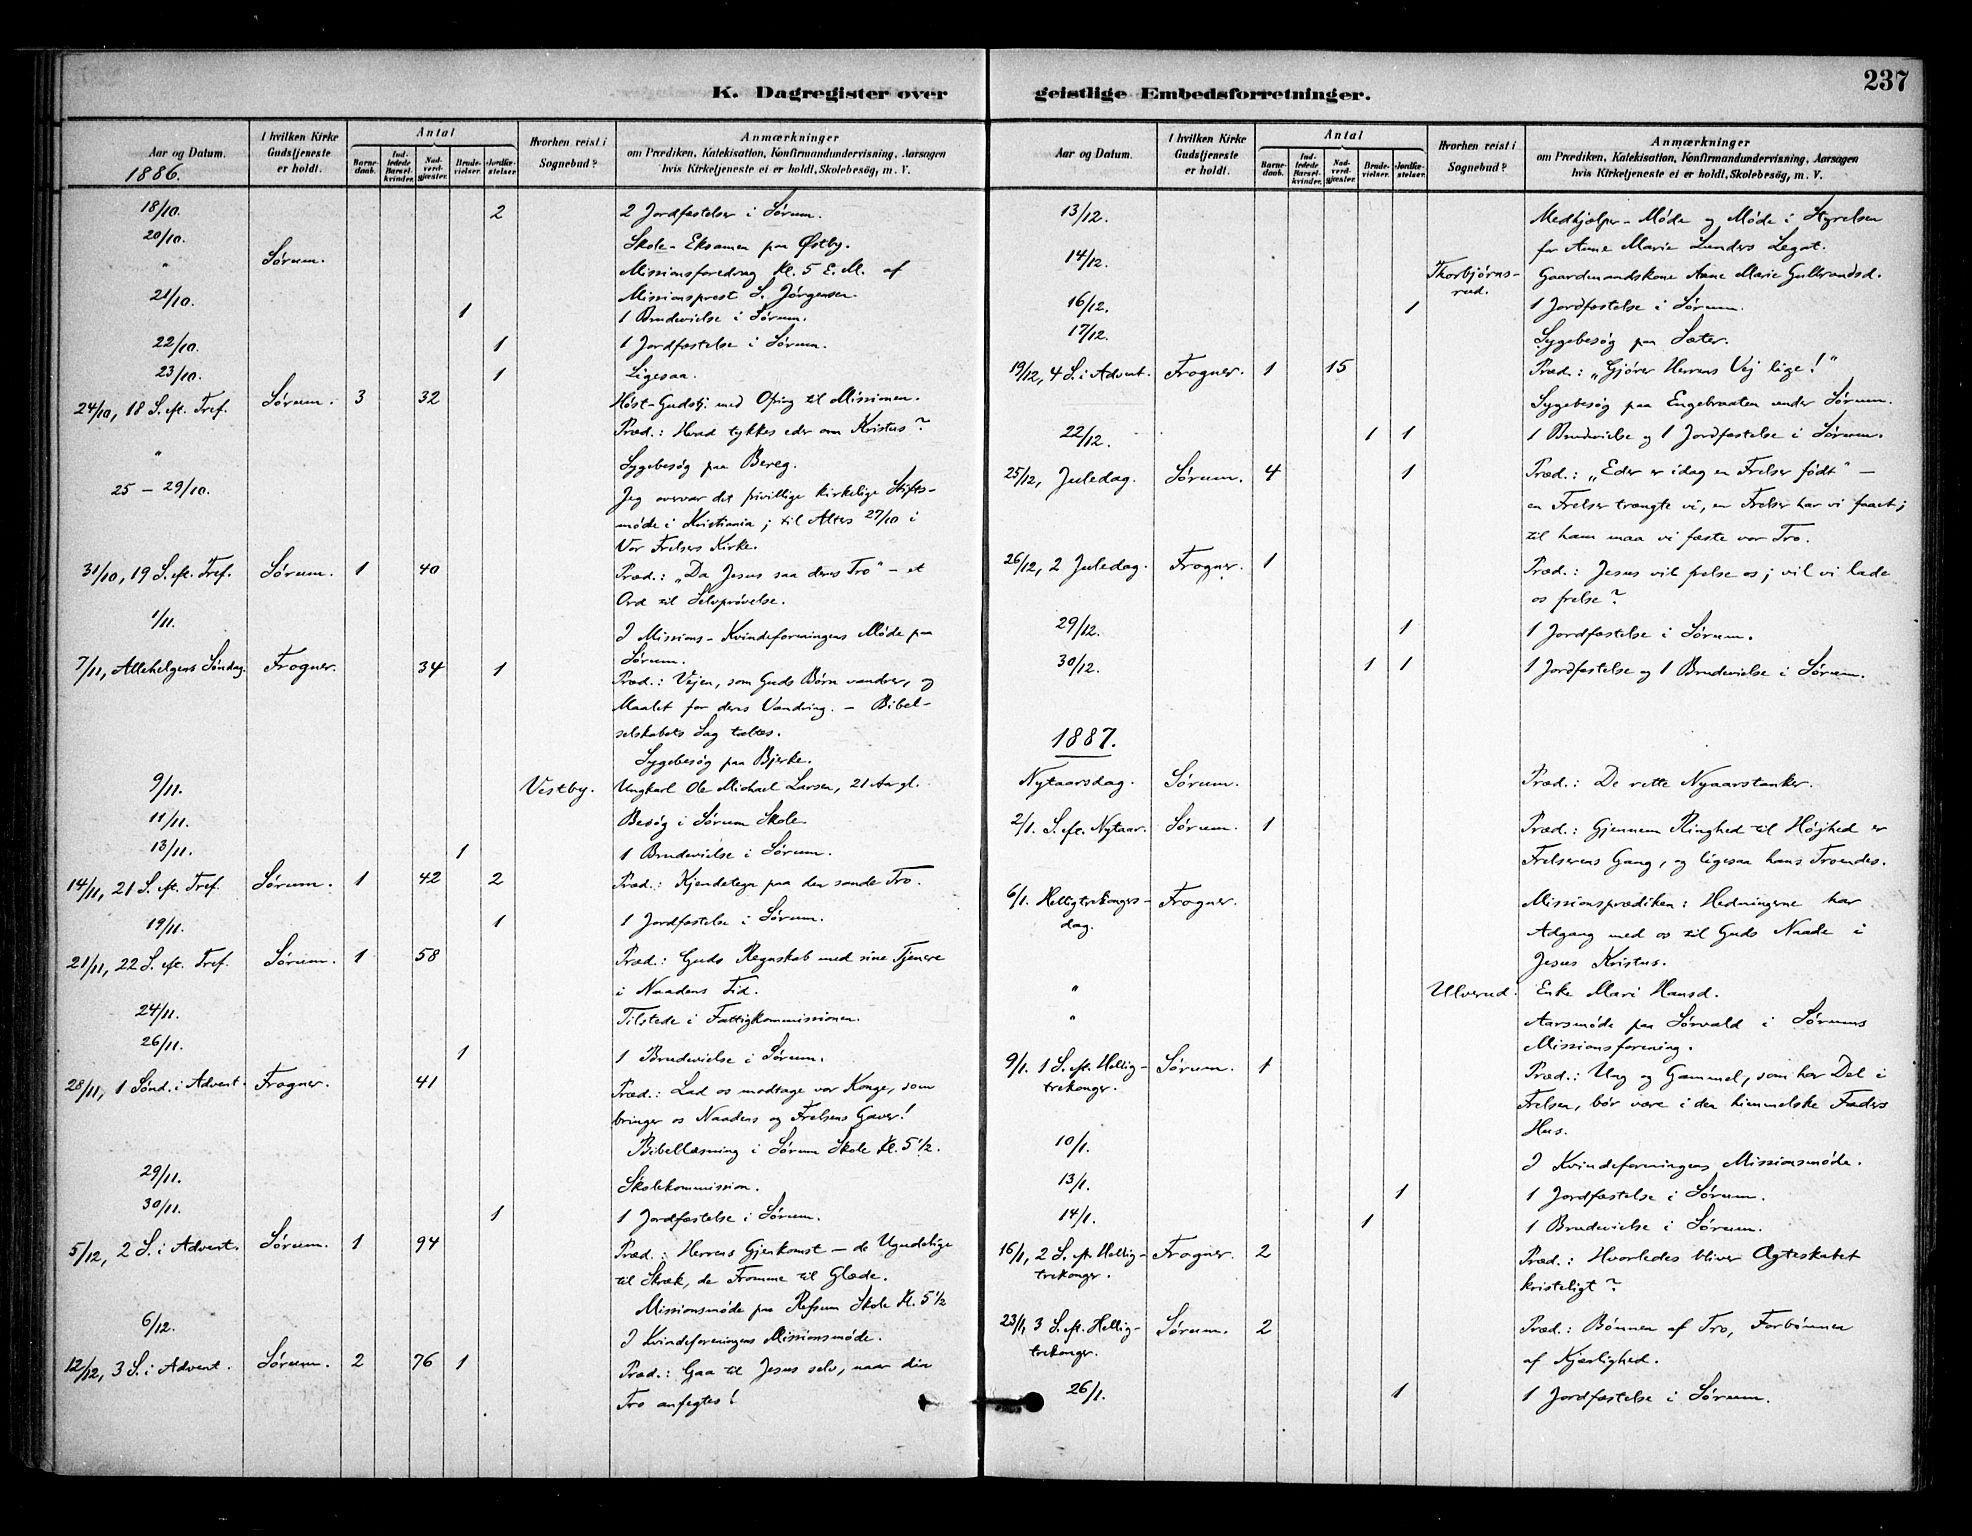 237
K. Dagregister over geistlige Embedsforretninger.
Aar og Datum.
I hvilken Kirke Gudstjeneste er holdt.
Antal
Barne-daab.
Ind-ledede Barsel-kvinder.
Nad-verd-gjæster.
Brude-vielser.
Jordfæ-stelser
Hvorhen reist i Sognebud?
Anmærkninger
om Prædiken, Katekisation, Konfirmandundervisning, Aarsagen
hvis Kirketjeneste ei er holdt, Skolebesøg, m. V.
1886.
18/10. 2 2 Jordfæstelser i Sørum.
20/10. Skole-Eksamen paa Østby.
" Sørum. Missionsforedrag Kl. 5 E.M. af
Missionsprest L. Jørgensen.
21/10. 1 1 Brudevielse i Sørum.
22/10. 1 1 Jordfæstelse i Sørum.
23/10. 1 Ligesaa.
24/10, 18 S. eft. Tref. Sørum. 3 32 Høst-Gudstj. med Ofring til Missionen.
Præd.: Hvad tykkes eder om Kristus?
" Sygebesøg paa Bereg.
25 - 29/10. Jeg overvar det frivillige kirkelige Stifts-
møde i Kristiania; til Alters 27/10 i
Vor Frelsers Kirke.
31/10, 19 S. eft. Tref. Sørum. 1 40 Præd.: „Da Jesus saa deres Tro" - et
Ord til Selvprøvelse.
1/11. I Missions-Kvindeforeningens Møde paa
Sørum.
7/11, Allehelgens Søndag. Frogner. 34 1 Præd.: Vejen, som Guds Børn vandrer, og
Maalet for deres Vandring. - Bibel-
selskabets Sag taltes.
Sygebesøg paa Bjerke.
9/11. Vestby. Ungkarl Ole Michael Larsen, 21 Aar gl.
11/11. Besøg i Sørum Skole.
13/11. 1 1 Brudevielse i Sørum.
14/11, 21 S. eft. Tref. Sørum. 1 42 2 Præd.: Kjendetegn paa den sande Tro.
19/11. 1 1 Jordfæstelse i Sørum.
21/11, 22 S. eft. Tref. Sørum. 1 58 Præd.: Guds Regnskab med sine Tjenere
i Naadens Tid.
24/11. Tilstede i Fattigkommissionen.
26/11. 1 1 Brudevielse i Sørum.
28/11, 1 Sønd. i Advent. Frogner. 41 Præd.: Lad os modtage vor Konge, som
bringer os Naadens og Frelsens Gaver!
Bibellæsning i Sørum Skole Kl. 5 1/2.
29/11. Skolekommission.
30/11. 1 1 Jordfæstelse i Sørum.
5/12, 2 S. i Advent. Sørum. 1 94 Præd.: Herrens Gjenkomst - de Ugudelige
til Skræk, de Fromme til Glæde.
Missionsmøde paa Refsum Skole Kl. 5 1/2
6/12. I Kvindeforeningens Missionsmøde.
12/12, 3 S. i Advent. Sørum. 2 76 1 Præd.: Gaa til Jesus selv, naar din
Tro anfegtes!
Aar og Datum.
I hvilken Kirke Gudstjeneste er holdt.
Antal
Barne-daab.
Ind-ledede Barsel-kvinder.
Nad-verd-gjæster.
Brude-vielser.
Jordfæ-stelser.
Hvorhen reist i Sognebud?
Anmærkninger
om Prædiken, Katekisation, Konfirmandundervisning, Aarsagen
hvis Kirketjeneste ei er holdt, Skolebesøg, m. V.
13/12. Medhjælper-Møde og Møde i Styrelsen
for Anne Marie Lunders Legat.
14/12. Thorbjørns-rud. Gaardmandskone Anne Marie Gulbrandsd.
16/12. 1 1 Jordfæstelse i Sørum.
17/12. Sygebesøg paa Sæter.
19/12, 4 S. i Advent. Frogner. 1 15 Præd.: „Gjører Herrens Vej lige!"
Sygebesøg paa Engebraaten under Sørum.
22/12. 1 1 1 Brudevielse og 1 Jordfæstelse i Sørum.
25/12, Juledag. Sørum. 4 1 Præd.: „Eder er idag en Frelser født" -
en Frelser trængte vi, en Frelser har vi faaet;
til ham maa vi fæste vor Tro.
26/12, 2 Juledag. Frogner. 1 Præd.: Jesus vil frelse os; vil vi lade
os frelse?
29/12. 1 1 Jordfæstelse i Sørum.
30/12. 1 1 1 Jordfæstelse og 1 Brudevielse i Sørum.
1887.
Nytaarsdag. Sørum. Præd.: De rette Nyaarstanker.
2/1. S. eft. Nytaar. Sørum. 1 Præd.: Gjennem Ringhed til Højhed er
Frelserens Gang, og ligesaa hans Troendes.
6/1. Helligtrekongers-dag. Frogner. Missionsprædiken: Hedningerne har
Adgang med os til Guds Naade i
Jesus Kristus.
" Ulverud. Enke Mari Hansd.
" Aarsmøde paa Sørvald i Sørums
Missionsforening.
9/1. 1 S. eft. Hellig-trekonger. Sørum. 1 Præd.: Ung og Gammel, som har Del i
Frelsen, bør være i den himmelske Faders
Hus.
10/1. I Kvindeforeningens Missionsmøde.
13/1. 1 1 Jordfæstelse i Sørum.
14/1. 1 1 Brudevielse i Sørum.
16/1, 2 S. eft. Hellig-trekonger. Frogner. 2 Præd.: Hvorledes bliver Ægteskabet
kristeligt?
23/1, 3 S. eft. Hellig-trekonger. Sørum. 2 Præd.: Bønnen af Tro, Forbønnen
af Kjærlighed.
26/1. 1 1 Jordfæstelse i Sørum.